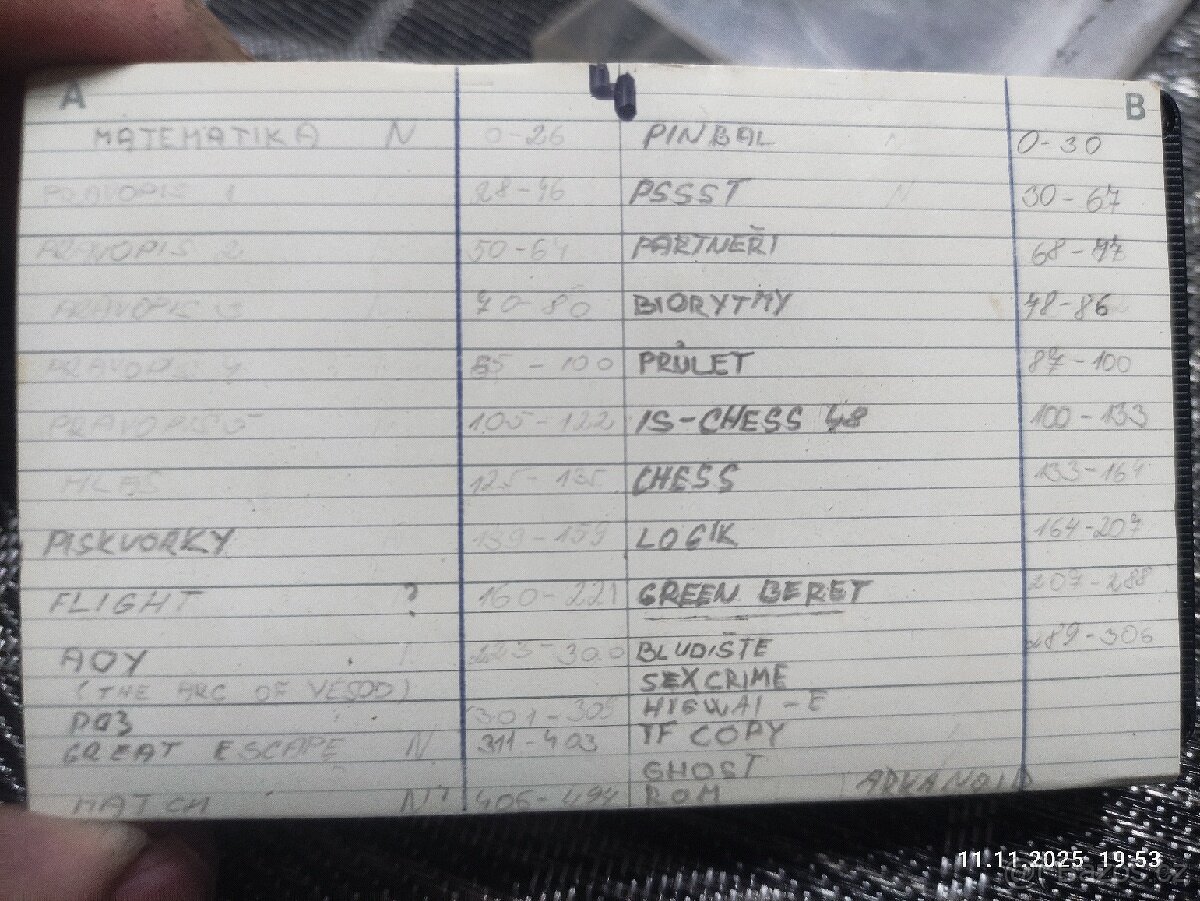 A 4 B
MATEMATIKA N 0-26 PINBAL N 0-30
PRAVOPIS 1 28-46 PSSST N 30-67
PRAVOPIS 2 50-64 PARTNEŘI 68-77
PRAVOPIS 3 70-80 BIORYTMY 78-86
PRAVOPIS 4 85-100 PRŮLET 87-100
PRAVOPIS 5 105-122 IS-CHESS 48 100-133
125-135 CHESS 133-164
PISKVORKY 139-159 LOGIK 164-207
FLIGHT ? 160-221 GREEN BERET 207-288
AOY 223-300 BLUDIŠTE 289-306
(THE ARC OF YESOD) SEXCRIME
301-305 HIGWAI-E
GREAT ESCAPE N 311-403 TF COPY
GHOST
MATCH N? 406-494 ROM ARKANOID
11.11.2025 19:53